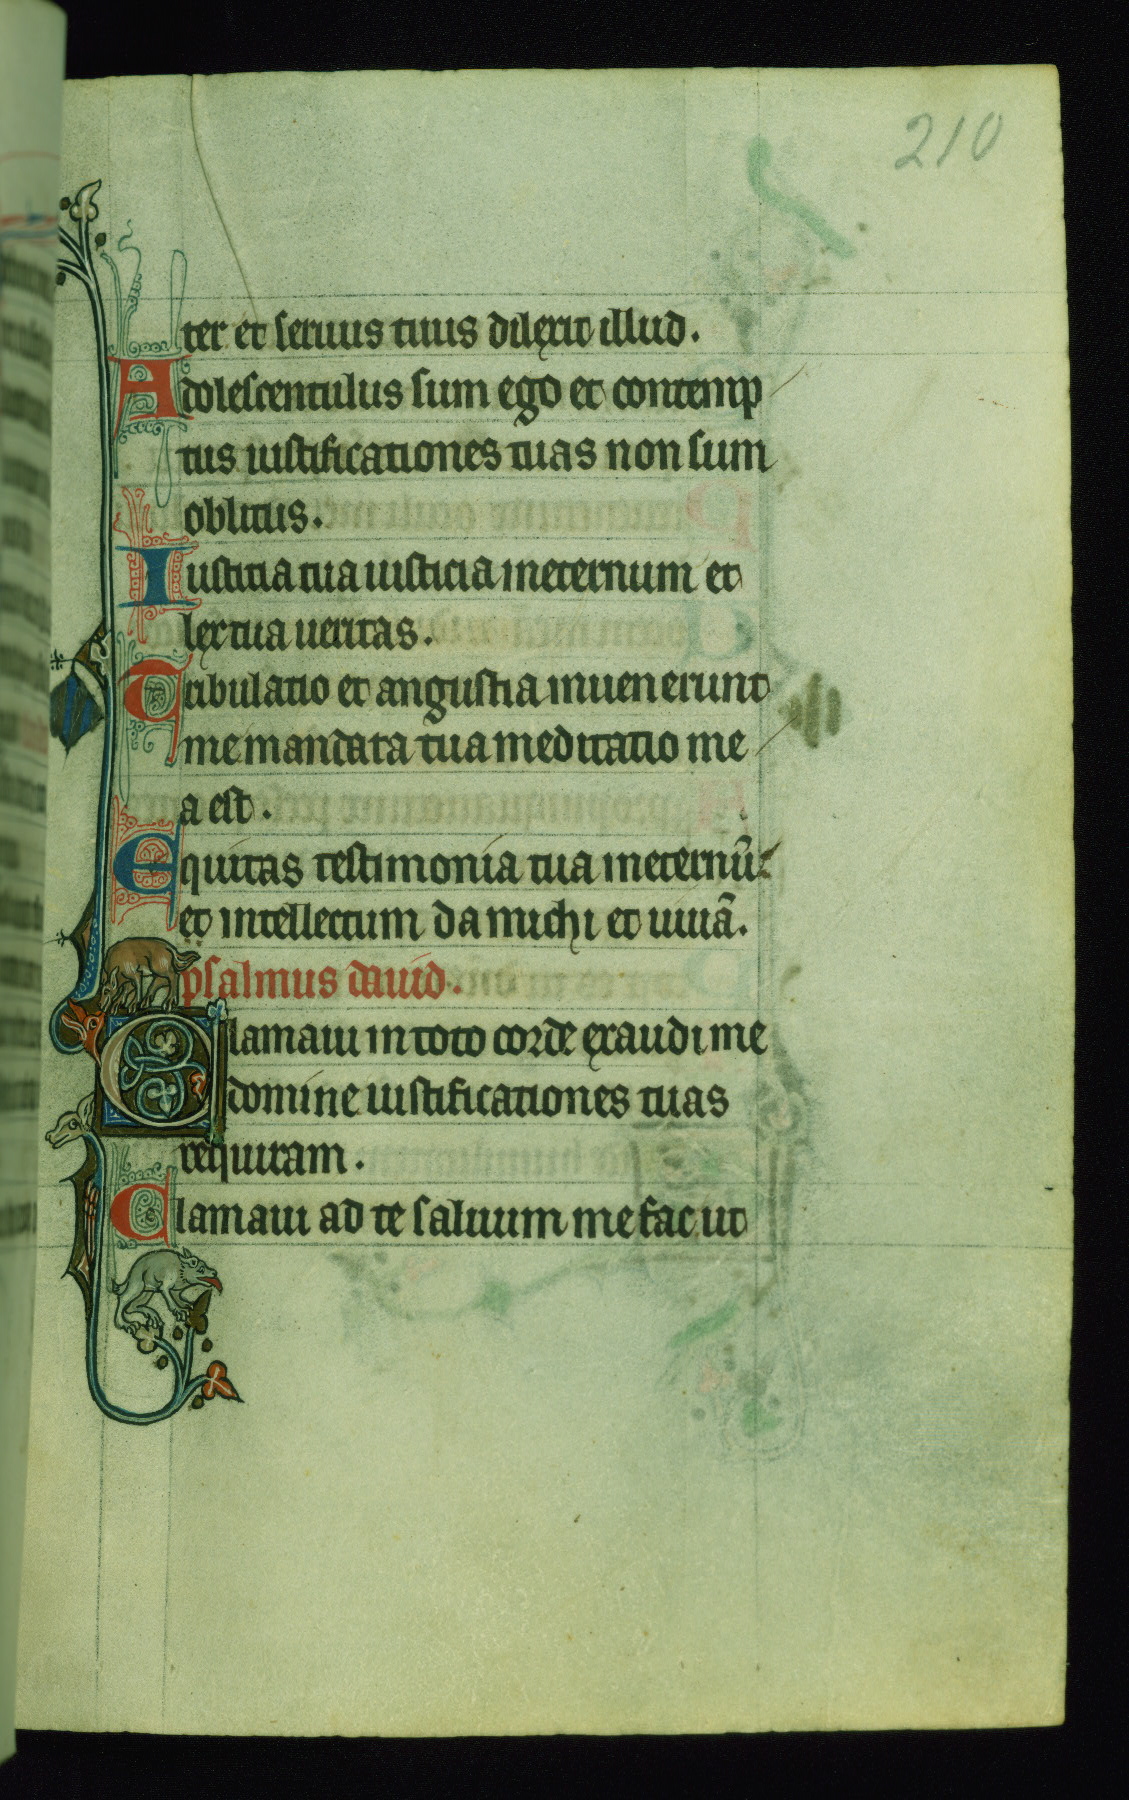 210
ter et seruus tuus dilexit illud.
Adolescentulus sum ego et contemp
tus iustificationes tuas non sum
oblitus.
Iustitia tua iusticia ineternum et
lex tua ueritas.
Tribulatio et angustia inuenerunt
me mandata tua meditatio me
a est.
Equitas testimonia tua ineternū
et intellectum da michi et uiuā.
psalmus dauid.
Clamaui in toto corde exaudi me
domine iustificationes tuas
requiram.
Clamaui ad te saluum me fac ut